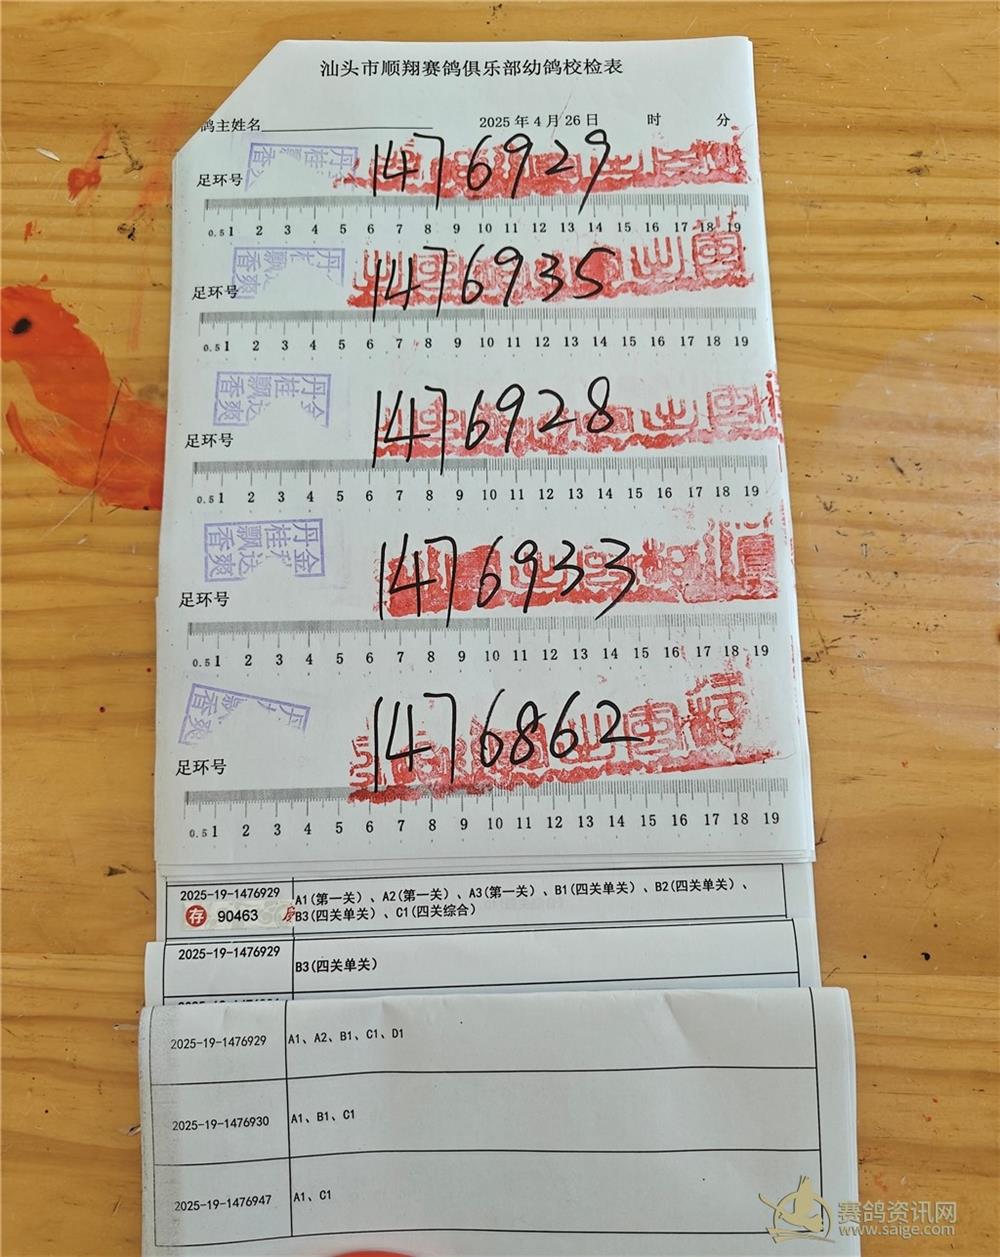 汕头市顺翔赛鸽俱乐部幼鸽校检表
鸽主姓名 2025年4月26日 时 分
足环号 1476929
丹桂飘香
0.5 1 2 3 4 5 6 7 8 9 10 11 12 13 14 15 16 17 18 19
足环号 1476935
丹 飘香爽
0.5 1 2 3 4 5 6 7 8 9 10 11 12 13 14 15 16 17 18 19
足环号 1476928
丹金桂飘达香爽
0.5 1 2 3 4 5 6 7 8 9 10 11 12 13 14 15 16 17 18 19
足环号 1476933
丹金桂飘达香爽
0.5 1 2 3 4 5 6 7 8 9 10 11 12 13 14 15 16 17 18 19
足环号 1476862
丹 飘香爽
0.5 1 2 3 4 5 6 7 8 9 10 11 12 13 14 15 16 17 18 19
2025-19-1476929 A1(第一关)、A2(第一关)、A3(第一关)、B1(四关单关)、B2(四关单关)、
存 90463 B3(四关单关)、C1(四关综合)
2025-19-1476929 B3(四关单关)
2025-19-1476929 A1、A2、B1、C1、D1
2025-19-1476930 A1、B1、C1
2025-19-1476947 A1、C1
赛鸽资讯网
www.saige.com